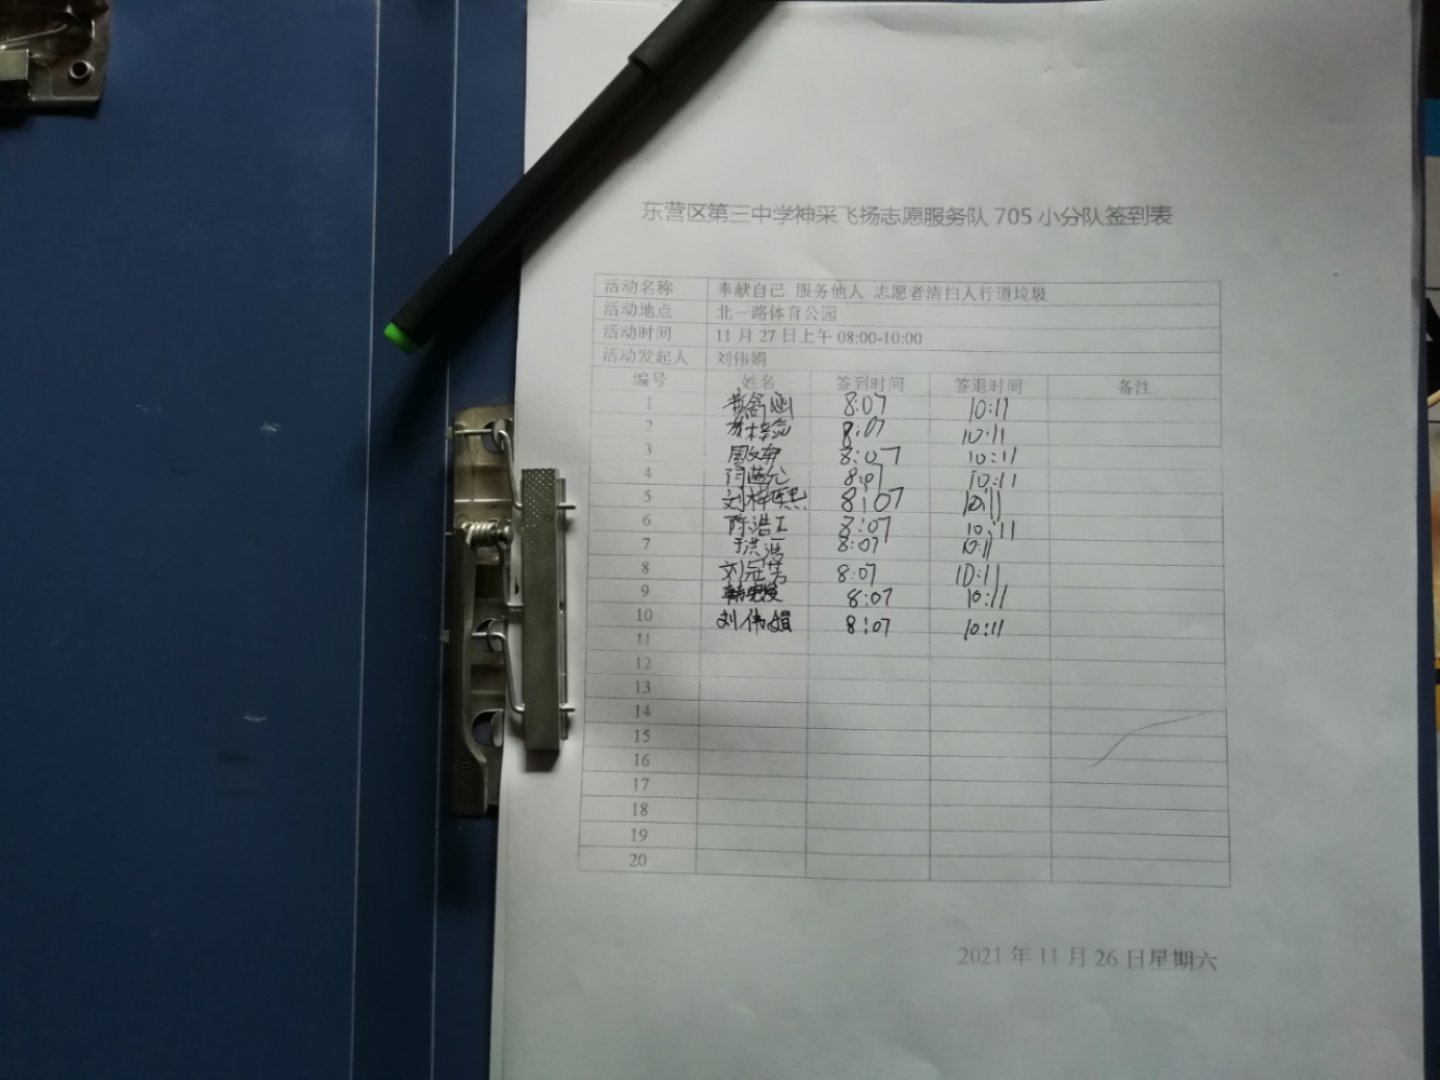 东营区第三中学神采飞扬志愿服务队 705 小分队签到表
活动名称 奉献自己 服务他人 志愿者清扫人行道垃圾
活动地点 北一路体育公园
活动时间 11 月 27 日上午 08:00-10:00
活动发起人 刘伟娟
编号 姓名 签到时间 签退时间 备注
1 黄舒涵 8:07 10:11
2 8:07 10:11
3 8:07 10:11
4 8:07 10:11
5 8:07 10:11
6 陈浩 8:07 10:11
7 于洪 8:07 10:11
8 刘冠 8:07 10:11
9 8:07 10:11
10 刘伟娟 8:07 10:11
11
12
13
14
15
16
17
18
19
20
2021 年 11 月 26 日星期六